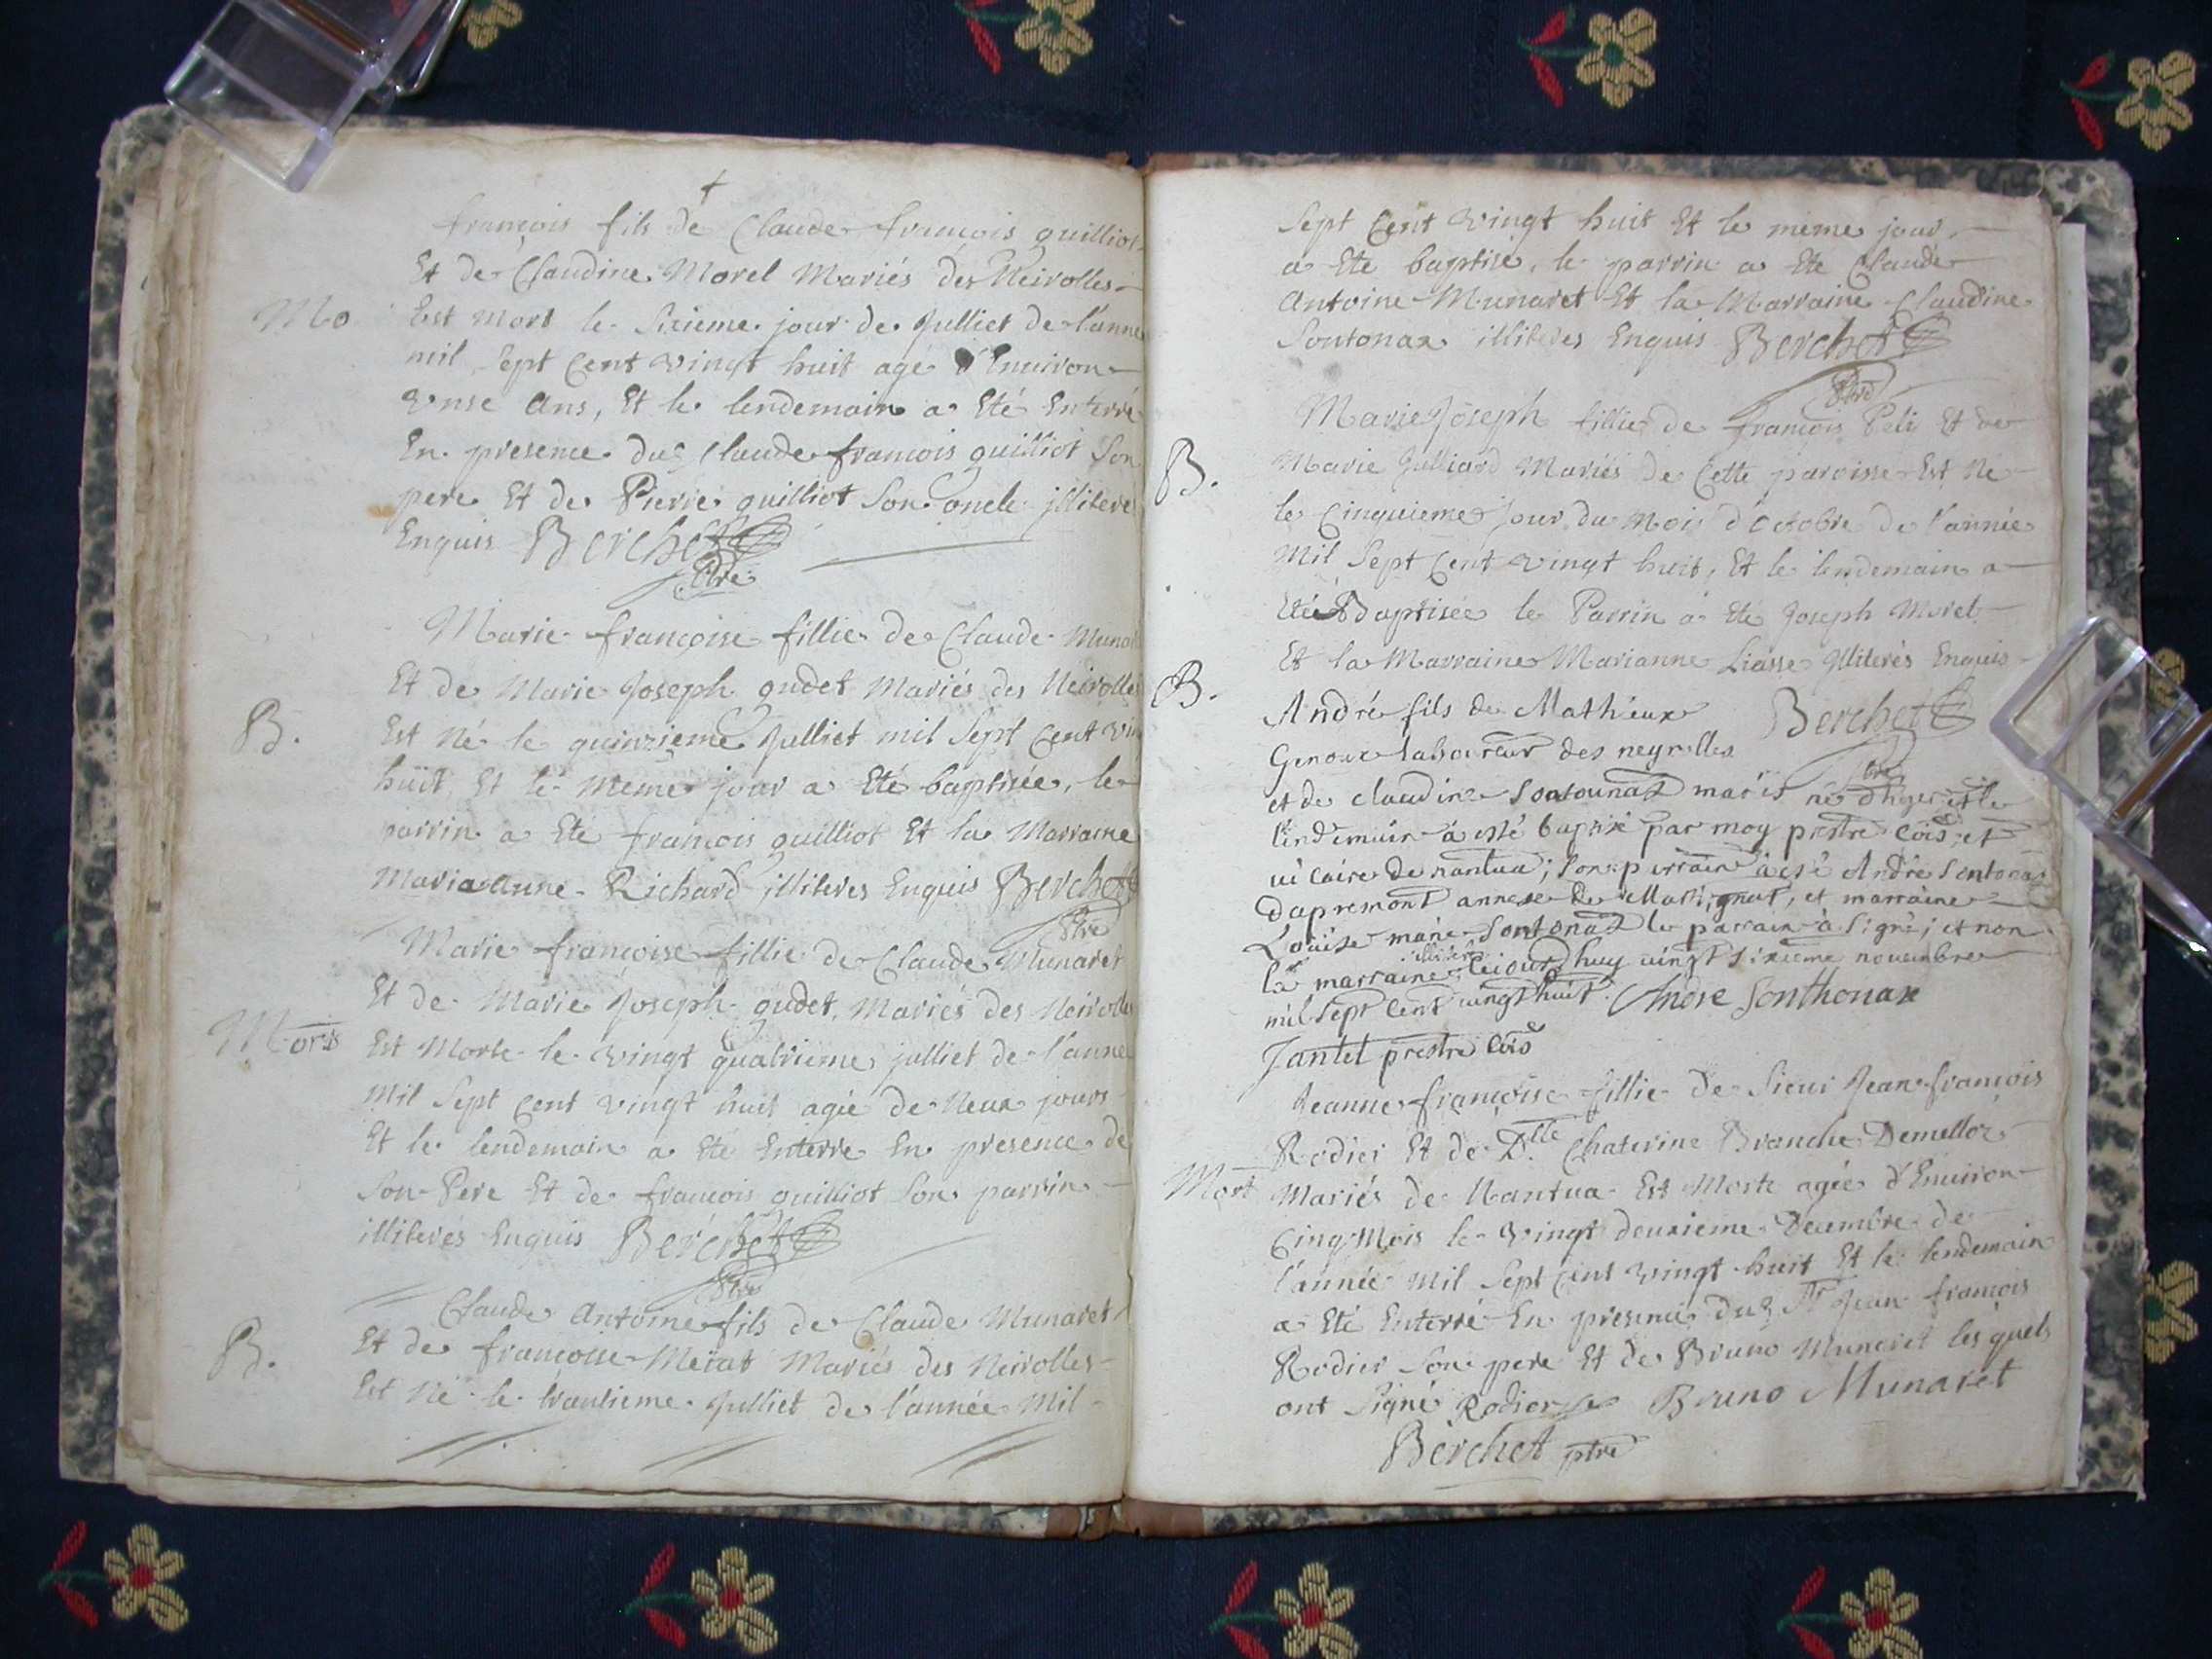 françois fils de Claude françois quilliot
Et de Claudine Morel Mariés des Neirolles
Mo Est Mort le Sixieme jour de Julliet de l'anne
mil Sept Cent vingt huit agé d'Environ
vnse Ans, Et le lendemain a Eté Enterré
En presence dud Claude françois quilliot Son
pere Et de Pierre quilliot Son oncle jlliteres
Enquis Berchet
Ptre
Marie françoise fillie de Claude Munar
Et de Marie Joseph gudet Mariés des Neirolles
B. Est Né le quinzieme Julliet mil Sept Cent vin
huit, Et le Meme jour a Eté baptisée, le
parrin a Eté françois quilliot Et la Marraine
Marianne Richard jlliteres Enquis Berchet
Ptre
Marie françoise fillie de Claude Munaret
Et de Marie Joseph gudet Mariés des Neirolles
Morts Est Morte le vingt quatrieme julliet de l'anne
Mil Sept Cent vingt huit agée de Neux jours
Et le lendemain a Eté Enterre En presence de
Son Pere Et de françois quilliot Son parrin
illiterés Enquis Berchet
Ptre
Claude Antoine fils de Claude Munaret
B. Et de françoise Merat Mariés des Neirolles
Est Né le trantieme Julliet de l'année Mil
Sept Cent vingt huit Et le méme jour
a Eté baptisé, le parrin a Eté Claude
Antoine Munaret Et la Marraine Claudine
Sontonax illiteres Enquis Berchet
Ptre
Marie Joseph fillie de françois Peli Et de
B. Marie Julliard Mariés de Cette paroisse Est Né
le Cinquieme jour du Mois d'Octobre de l'année
Mil Sept Cent vingt huit, Et le lendemain a
Eté Baptisée le Parrin a Eté Joseph Morel
Et la Marraine Marianne Liasse Jlliterés Enquis
B. André fils de Mathieux Berchet
Genoux laboureur des neyrolles Ptre
et de claudine Sontounax mariés né d'hyer et le
lendemain à esté baptisé par moy prestre cois et
vicaire de nantua; Son parrain à esté André Sontonax
d'apremont annexe de Martignat, et marraine
Louise marie Sontonax le parrain à Signé; et non
la marraine illitérée cejourdhuy vingt sixieme nouembre
mil Sept Cent vingt huit. Andre Sonthonax
Jantet prestre cois
Jeanne françoise fillie de Sieur Jean françois
Rodier Et de Dlle Chaterine Branche Demelloz
Mort Mariés de Nantua Est Morte agée d'Environ
Cinq Mois le vingt deuxieme Decembre de
l'année Mil Sept Cent vingt huit Et le lendemain
a Eté Enterré En presence dud Sr Jean françois
Rodier Son pere Et de Bruno Muneret les quels
ont Signé Rodier Bruno Munaret
Berchet ptre